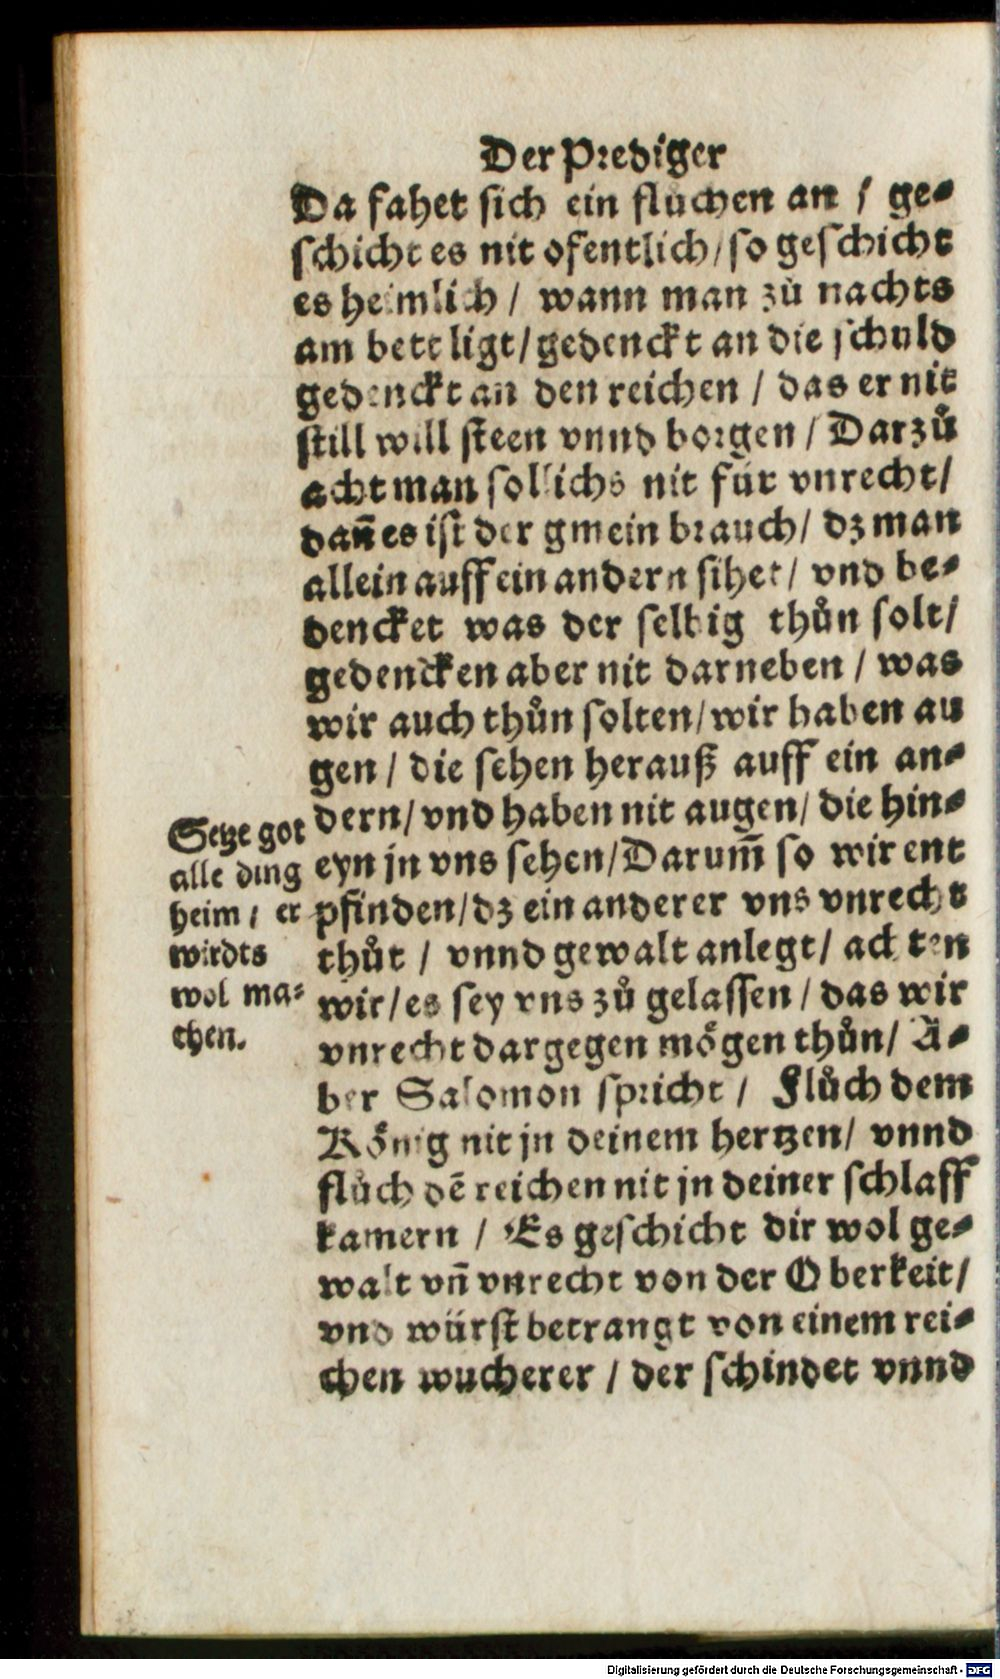 Der Prediger
Da fahet sich ein flůchen an / ge⸗
schicht es nit ofentlich / so geschicht
es heimlich / wann man zů nachts
am bett ligt / gedenckt an die schuld
gedenckt an den reichen / das er nit
still will steen vnnd borgen / Darzů
acht man sollichs nit für vnrecht /
dañ es ist der gmein brauch / dz man
allein auff ein andern sihet / vnd be⸗
dencket was der selbig thůn solt /
gedencken aber nit darneben / was
wir auch thůn solten / wir haben au
gen / die sehen herauß auff ein an⸗
dern / vnd haben nit augen / die hin⸗
eyn jn vns sehen / Darum̃ so wir ent
pfinden / dz ein anderer vns vnrecht
thůt / vnnd gewalt anlegt / achten
wir / es sey vns zů gelassen / das wir
vnrecht dargegen mögen thůn / A⸗
ber Salomon spricht / Flůch dem
König nit jn deinem hertzen / vnnd
flůch dē reichen nit jn deiner schlaff
kamern / Es geschicht dir wol ge⸗
walt vñ vnrecht von der Oberkeit /
vnd würst betrangt von einem rei⸗
chen wucherer / der schindet vnnd
Setze got
alle ding
heim / er
wirdts
wol ma⸗
chen.
Digitalisierung gefördert durch die Deutsche Forschungsgemeinschaft - DFG